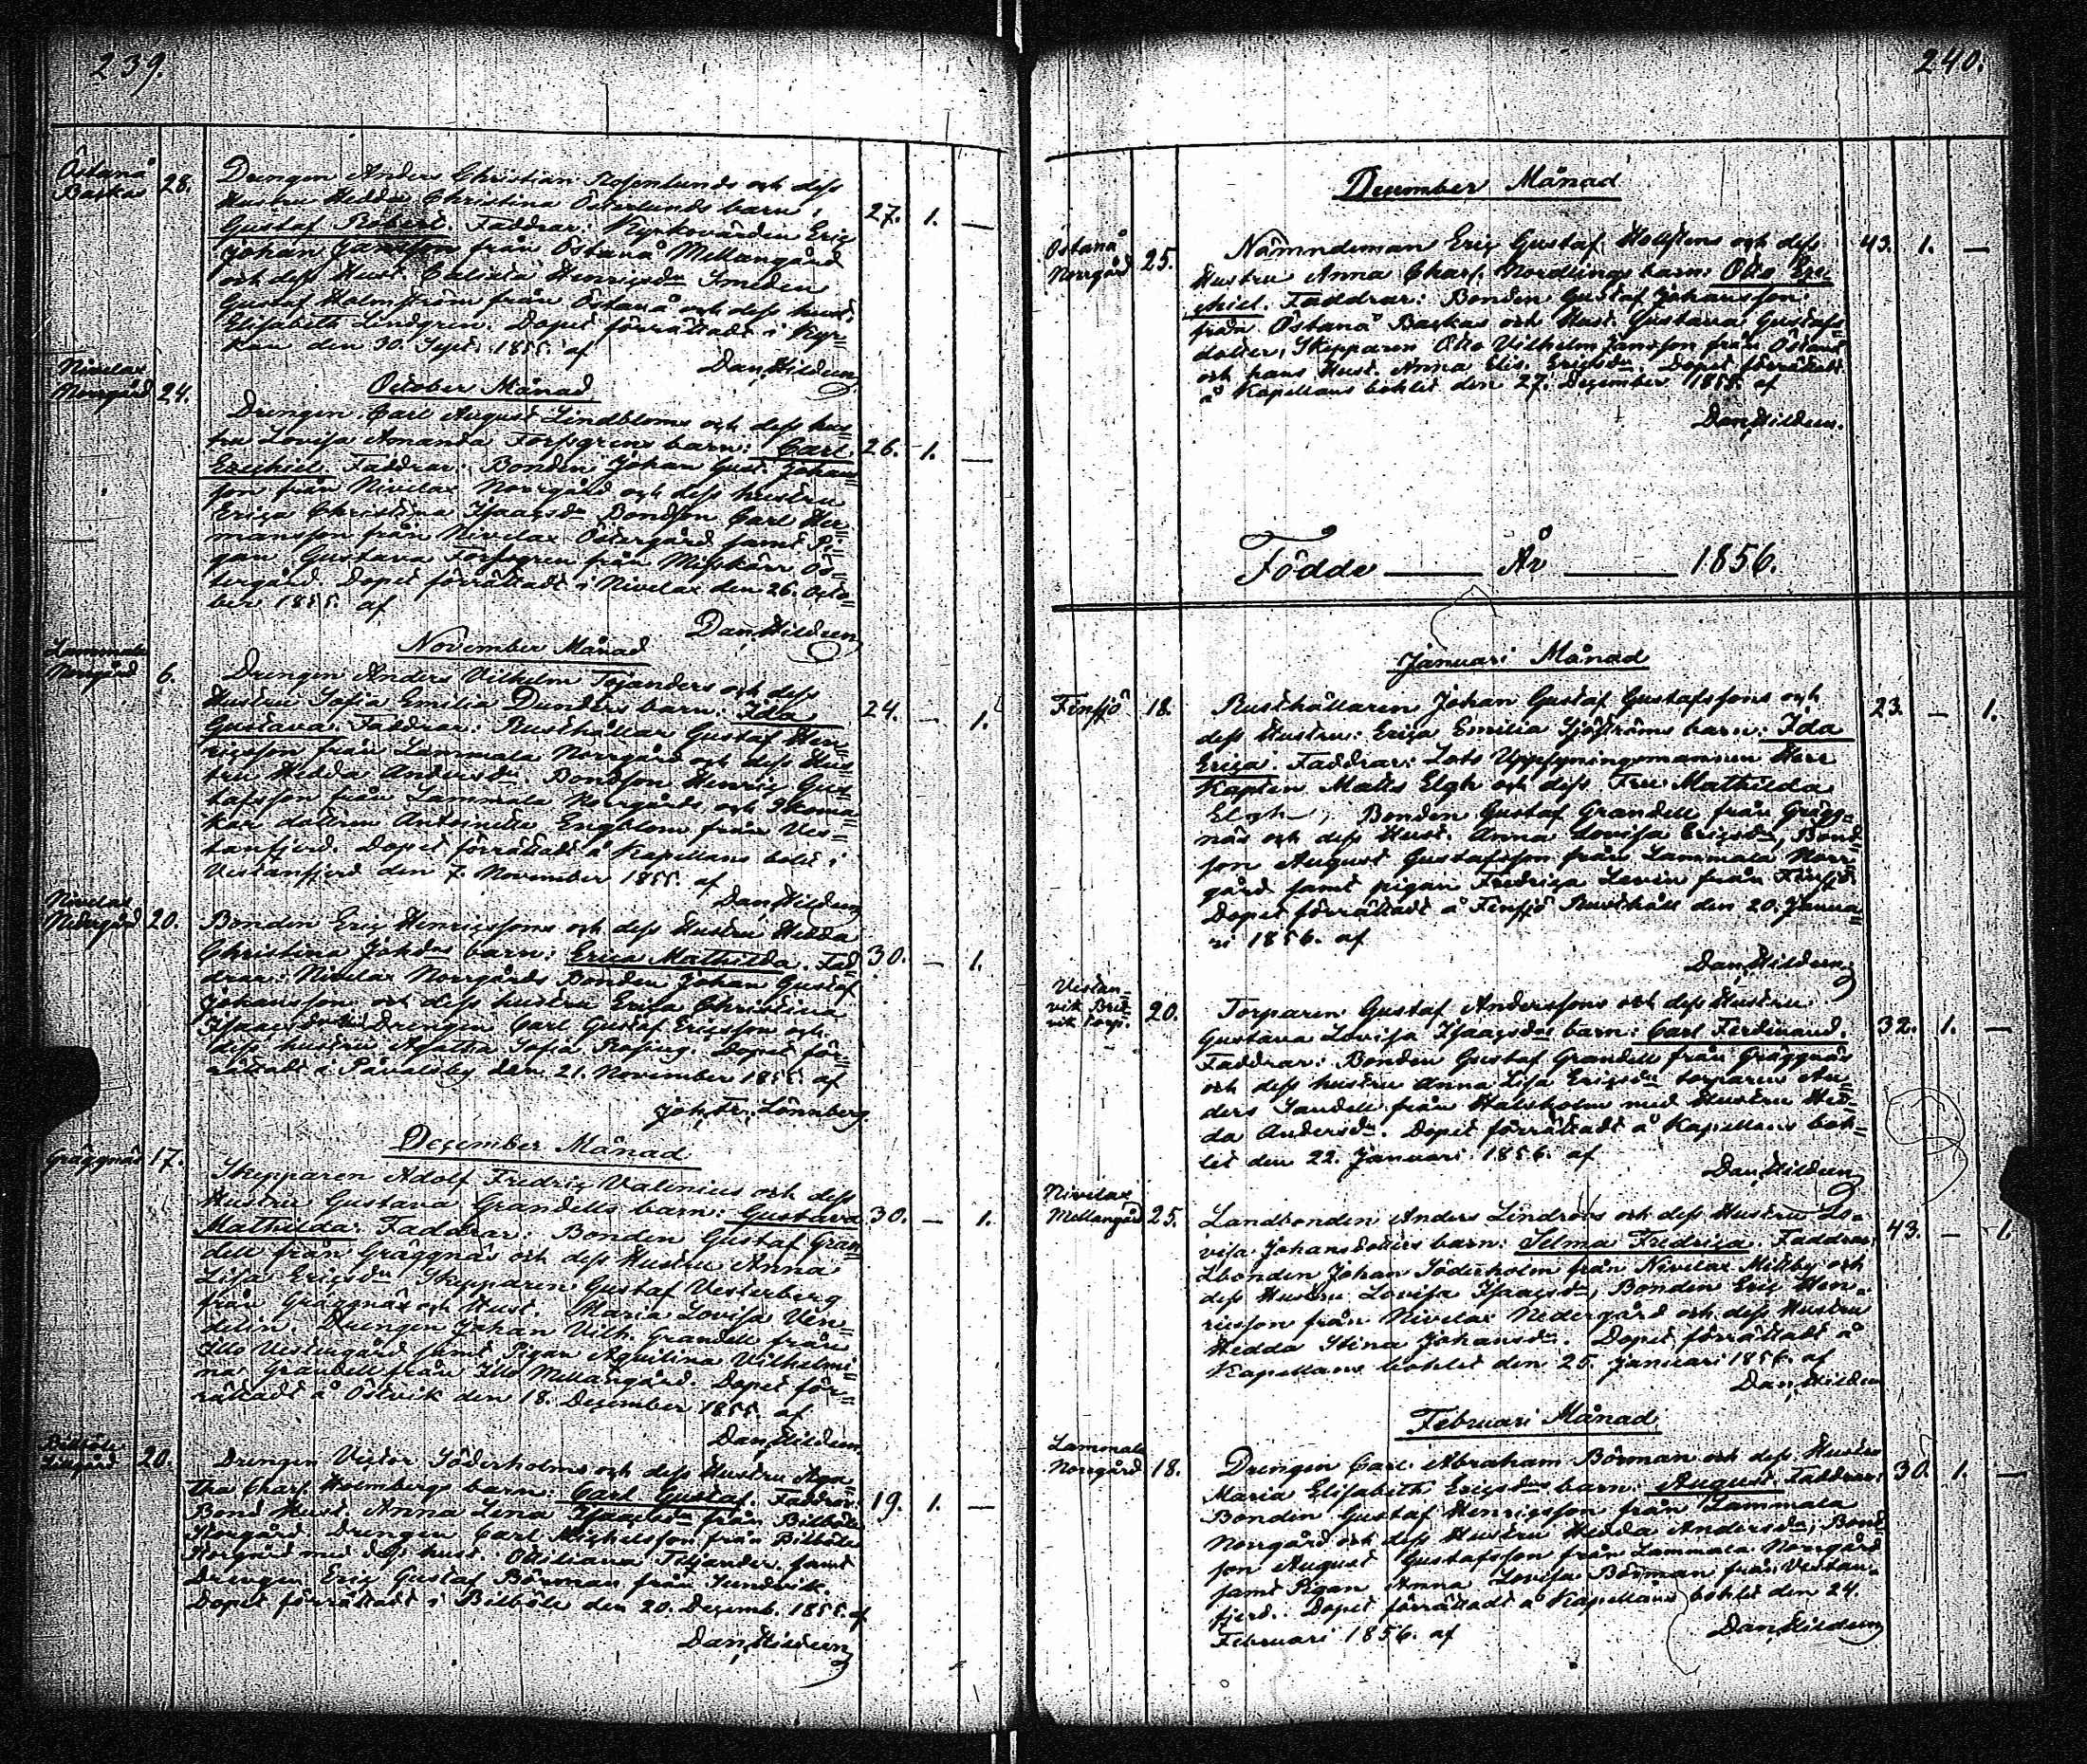 239.
Östanå
Backas 28.
Drengen Anders Christian Rosenlunds och dess
Hustru Hedda Christina Österlunds barn,
Gustaf Robert. Faddrar: Kyrkovärden Eric
Johan Jansson från Östanå Mellangård
och dess Hust. Henricsdr Smeden
Gustaf Helmström från Östanå och dess hust.
Elisabeth Lindgren. Dopet förrättadt i Kyr=
kan den 30. Sept. 1855. af
Dan. Hildeen
27. 1. —
October Månad
Nivelax
Norrgård 24.
Drengen Carl August Lindbloms och dess hus=
tru Lovisa Amanda Forssgrens barn: Carl
Ezechiel. Faddrar: Bonden Johan Gust. Johans=
son från Nivelax Norrgård och dess hustru
Erica Christina Isaacsdr Bondson Carl Her=
mansson från Nivelax Östergård samt Pi=
gan Gustava Forssgren från Misskärr Ös=
tergård. Dopet förrättadt i Nivelax den 26. Octo=
ber 1855. af
Dan. Hildeen
26. 1. —
November Månad
Lammala
Norrgård 6.
Drengen Anders Vilhelm Tojanders och dess
Hustru Sofia Emilia Dunders barn: Ida
Gustava. Faddrar: Rusthållar Gustaf Hen=
ricsson från Lammala Norrgård och dess Hus=
tru Hedda Andersdr. Bondson Henric Gus=
tafsson från Lammala Norrgårds och Skoma=
kar dottren Antoinette Engblom från Ves=
tanfjerd. Dopet förrättadt å Kapellans bolet i
Vestanfjerd den 7. November 1855. af
Dan. Hildeen
24. — 1.
Nivelax
Nedergård 20.
Bonden Eric Henricssons och dess Hustru Hedda
Christina Johsdrs barn: Erica Mathilda. Fad=
drar: Nivelax Norrgårds Bonden Johan Gustaf
Johansson och dess hustru Erica Christina
Isaacsdotter Drengen Carl Gustaf Ericsson och
dess hustru Agatha Sofia. Dopet för=
rättadt i Påvalsby den 21. November 1855. af
Joh. Fr. Lönnberg.
30. — 1.
December Månad
Gräggnäs 17.
Skepparen Adolf Fredric Valenius och dess
Hustru Gustava Grandells barn: Gustava
Mathilda. Faddrar: Bonden Gustaf Gran=
dell från Gräggnäs och dess Hustru Anna
Lisa Ericsdr Skepparen Gustaf Vesterberg
från Gräggnäs och Hust. Maria Lovisa Ven=
delin. Drengen Johan Vilh. Grandell från
Illo Vestergård samt Pigan Aquilina Vilhelmi=
na Grandell från Illo Mellangård. Dopet för=
rättadt å Östvik den 18. December 1855. af
Dan. Hildeen
30. — 1.
Bilböle
20.
Drengen Victor Söderholms och dess Hustru Aga=
tha Charl. Holmbergs barn: Carl Gustaf. Faddrar:
Bond Hust. Anna Lena Isaacsdr från Bilböle
Norgård Drengen Carl Michelsson från Bilböle
Norgård med dess hust. Ottiliana Tojander samt
Drengen Eric Gustaf Börman från Sundvik.
Dopet förrättadt i Bilböle den 20. Decemb. 1855. af
Dan. Hildeen
19. 1. —
240.
December Månad
Östanå
Norrgård 25.
Nämndeman Eric Gustaf Hollstens och dess
Hustru Anna Charl. Nordlings barn: Otto Eze=
chiel. Faddrar: Bonden Gustaf Johansson
från Östanå Backas och Hust. Gustava Gustafs=
dotter, Skepparen Otto Vilhelm Jansson från Östanå
och hans Hust. Anna Elis. Ericsdr. Dopet förrättadt
å Kapellans bohlet den 27. December 1855. af
Dan. Hildeen.
43. 1. —
Födde — År — 1856.
Januari Månad
Finsjö 18.
Rusthållaren Johan Gustaf Gustafssons och
dess Hustru: Erica Emilia Sjöströms barn: Ida
Erica. Faddrar: Lots Uppsyningsmannen Herr
Kapten Matts Elgh och dess Fru Mathilda
Elgh, Bonden Gustaf Grandell från Grägg=
näs och dess Hust. Anna Lovisa Ericsdr, Bond=
son August Gustafsson från Lammala Norr=
gård samt pigan Fredrica Levin från Finsjö.
Dopet förrättadt å Finsjö Rusthåll den 20. Janua=
ri 1856. af
Dan. Hildeen
23. — 1.
Vestan=
vik Bred=
vik Torp. 20.
Torparen Gustaf Anderssons och dess Hustru
Gustava Lovisa Isaacsdrs barn: Carl Ferdinand.
Faddrar: Bonden Gustaf Grandell från Gräggnäs
och dess hustru Anna Lisa Ericsdr torparen An=
ders Sandell från Halsholm med Hustru Hed=
da Andersdr. Dopet förrättadt å Kapellans boh=
let den 22. Januari 1856. af
Dan. Hildeen
32. 1. —
Nivelax
Mellangård 25.
Landbonden Anders Lindroos och dess Hustru Lo=
visa Johansdotters barn: Selma Fredrica. Faddrar:
Lbonden Johan Söderholm från Nivelax Millby och
dess Hustru Lovisa Isaacsdr, Bonden Eric Hen=
ricsson från Nivelax Nedergård och dess Hustru
Hedda Stina Johansdr. Dopet förrättadt å
Kapellans bohlet den 25. Januari 1856. af
Dan. Hildeen
43. — 1.
Februari Månad
Lammala
Norrgård 18.
Drengen Carl Abraham Börman och dess Hustru
Maria Elisabeth Ericsdrs barn: August. Faddrar:
Bonden Gustaf Henricsson från Lammala
Norrgård och dess Hustru Hedda Andersdr; Bond=
son August Gustafsson från Lammala Norrgård
samt Pigan Anna Lovisa Börman från Vestan=
fjerd. Dopet förrättadt å Kapellans bohlet den 24.
Februari 1856. af
Dan. Hildeen
30. 1. —